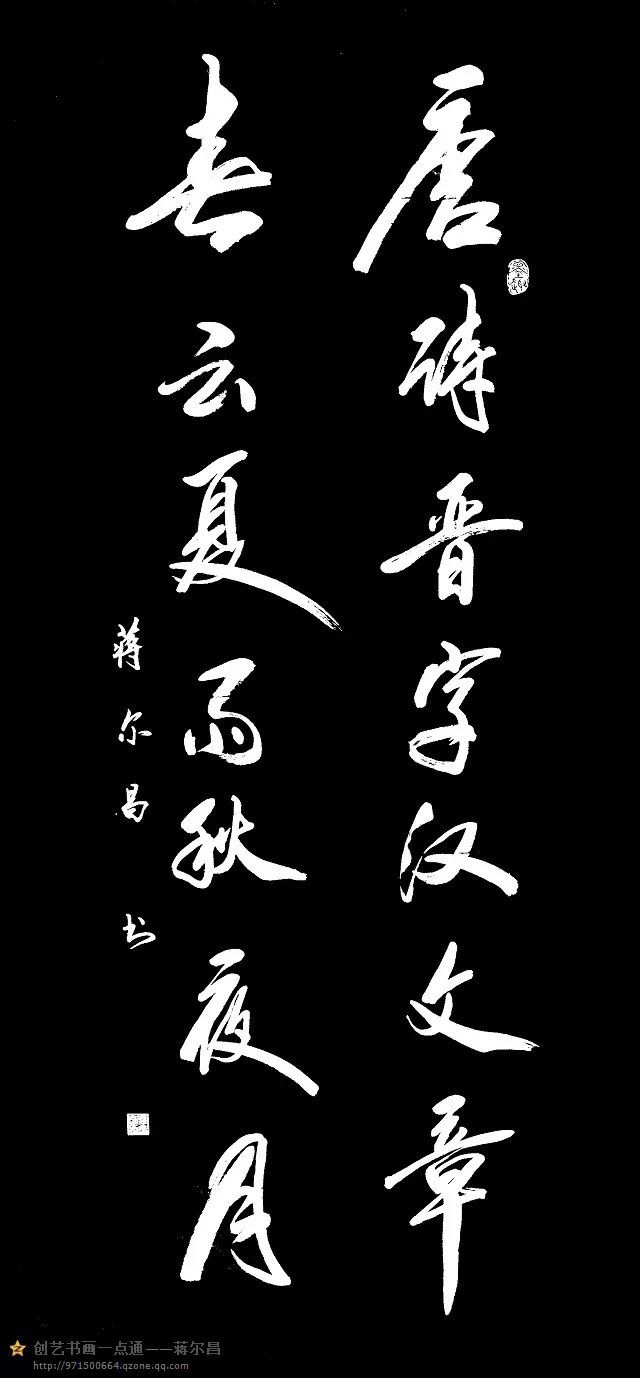 唐诗晋字汉文章
春云夏雨秋夜月
蒋尔昌 书
创艺书画一点通——蒋尔昌
http://971500664.qzone.qq.com